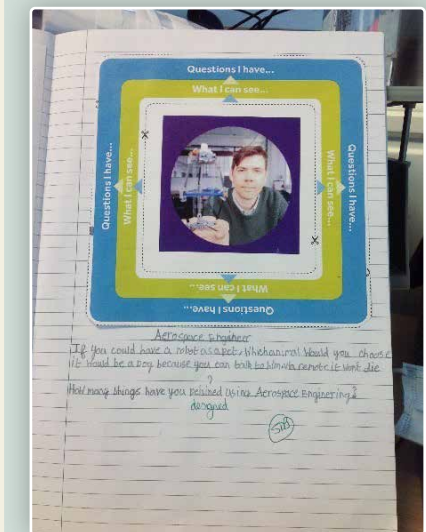 Questions I have...
What I can see...
Questions I have...
What I can see...
What I can see...
Questions I have...
What I can see...
Questions I have...
Aerospace Engineer
If you could have a robot as a pet, which animal would you choose
it would be a Dog because you can talk to him
it wont die
?
How many things have you using Aerospace Enginering?
designed